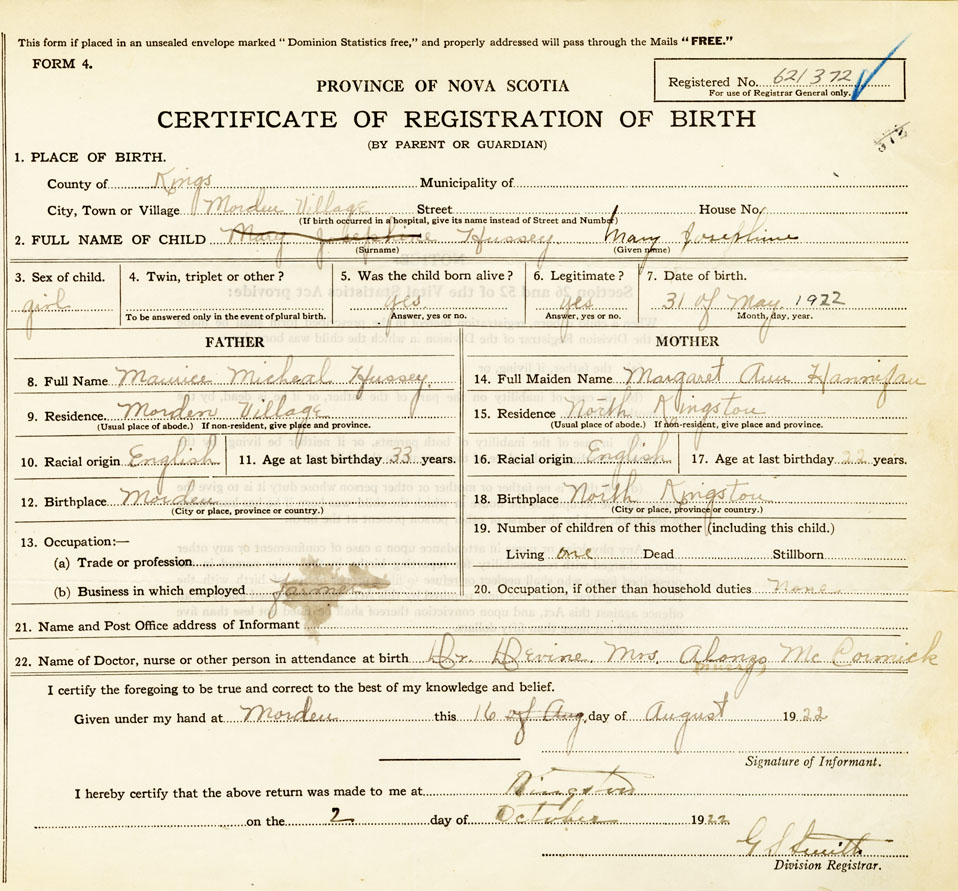 This form if placed in an unsealed envelope marked "Dominion Statistics free," and properly addressed will pass through the Mails "FREE."
FORM 4.
Registered No. 621372
For use of Registrar General only.
PROVINCE OF NOVA SCOTIA
CERTIFICATE OF REGISTRATION OF BIRTH
(BY PARENT OR GUARDIAN)
1. PLACE OF BIRTH.
County of Kings Municipality of
City, Town or Village Morden Village Street House No.
(If birth occurred in a hospital, give its name instead of Street and Number)
2. FULL NAME OF CHILD Mary Josephine Hussey Mary Josephine
(Surname) (Given name)
3. Sex of child. 4. Twin, triplet or other? 5. Was the child born alive? 6. Legitimate? 7. Date of birth.
girl yes yes 31 of May 1922
To be answered only in the event of plural birth. Answer, yes or no. Answer, yes or no. Month, day, year.
FATHER MOTHER
8. Full Name Maurice Micheal Hussey 14. Full Maiden Name Margaret Ann Hannifan
9. Residence Morden Village 15. Residence North Kingston
(Usual place of abode.) If non-resident, give place and province. (Usual place of abode.) If non-resident, give place and province.
10. Racial origin English 11. Age at last birthday 33 years. 16. Racial origin English 17. Age at last birthday 22 years.
12. Birthplace Morden 18. Birthplace North Kingston
(City or place, province or country.) (City or place, province or country.)
13. Occupation:— 19. Number of children of this mother (including this child.)
(a) Trade or profession Living one Dead Stillborn
(b) Business in which employed farmer 20. Occupation, if other than household duties None
21. Name and Post Office address of Informant
22. Name of Doctor, nurse or other person in attendance at birth Dr. Devine. Mrs. Alonzo McCormick
(nurse)
I certify the foregoing to be true and correct to the best of my knowledge and belief.
Given under my hand at Morden this 16 of Aug. day of August 1922
Signature of Informant.
I hereby certify that the above return was made to me at Kingston
on the 2 day of October 1922
G S Smith
Division Registrar.